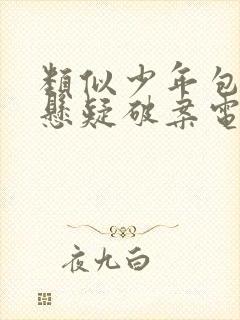 類似少年包
懸疑破案電
夜九白